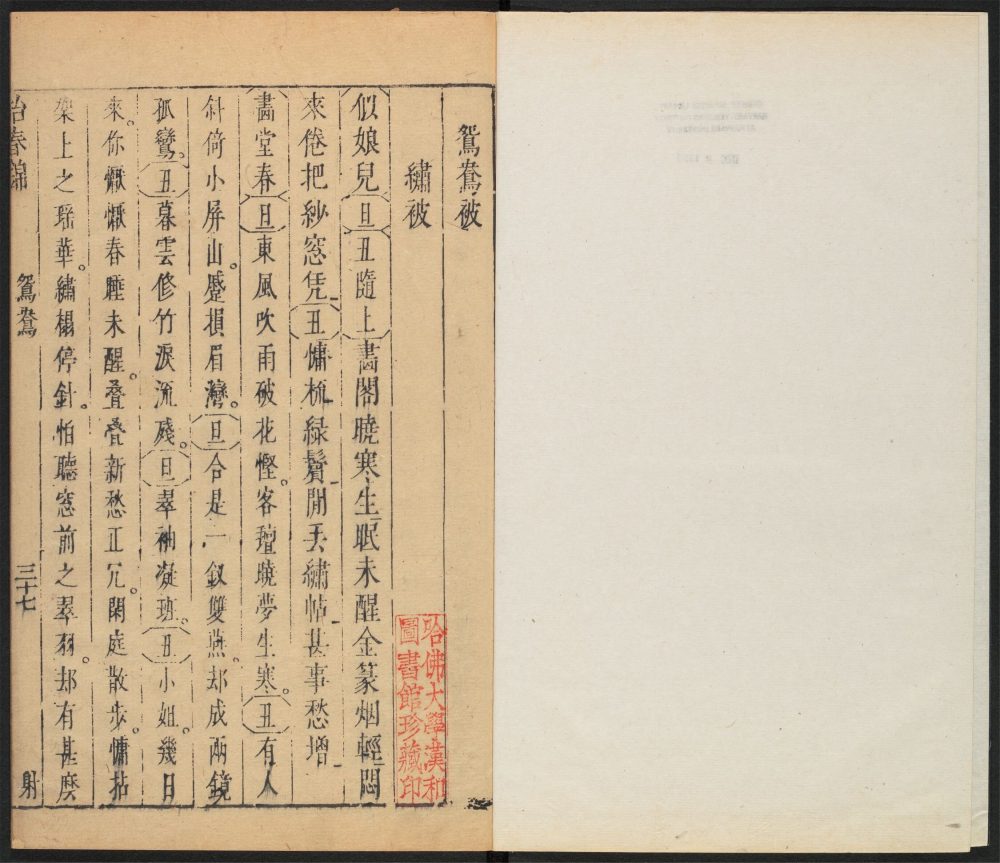 鴛鴦被
繡被
似娘兒旦丑隨上畵閣曉寒生眠未醒金篆烟輕悶
來倦把紗窓凭丑慵梳綠鬢閒丟繡帖甚事愁增
畵堂春旦東風吹雨破花慳。客氊曉夢生寒。丑有人
斜倚小屏山。蹙損眉灣。旦合是一釵雙燕。却成兩鏡
孤鸞。丑暮雲修竹淚流殘。旦翠袖凝班。丑小姐。幾日
來。你懨懨春睡未醒。叠叠新愁正冗。閑庭散步。慵拈
架上之瑶華。繡榻停針。怕聽窓前之翠羽。却有甚麽
怡春錦
鴛鴦
三十七
射
哈佛大學漢和
圖書館珍藏印